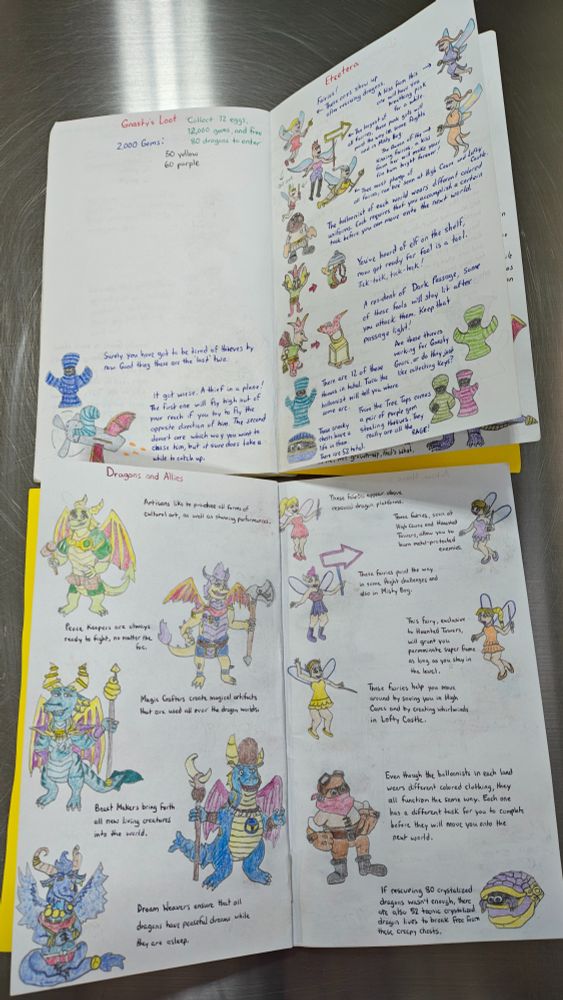 Gnasty's Loot
Collect 12 eggs,
12,000 gems, and free
80 dragons to enter
2,000 Gems:
50 yellow
60 purple
Surely, you have got to be tired of thieves by
now. Good thing these are the last two.
It got worse. A thief in a plane!
The first one will fly high out of
your reach if you try to fly the
opposite direction of him. The second
doesn't care which way you want to
chase him, but it sure does take a
while to catch up.
Etcetera
Fairies!
These ones show up
after rescuing dragons.
A kiss from this
one will have you
breathing pink
for a while
The balloonist of each world wears different colored
uniforms. Each requires that you accomplish a certain
task before you can move onto the next world.
You've heard of elf on the shelf,
now get ready for fool is a tool.
Tick-tock, tick-tock!
A resident of Dark Passage, some
of these fools will stay lit after
you attack them. Keep that
passage light!
There are 12 of these
thieves in total. Talk the
balloonist will tell you where
some are.
Are these thieves
working for Gnasty
Gnorc, or do they just
like collecting keys?
These sneaky
chests have a
life in them.
There are 52 total.
From the Tree Tops comes
a pair of purple gem
stealing thieves. They
really are all the
RAGE!
Dragons and Allies
Artisans like to practice all forms of
cultural art, as well as showing performances.
Peace Keepers are always
ready to fight, no matter the
foe.
Magic Crafters create magical artifacts
that are used all over the dragon worlds.
Beast Makers bring forth
all new living creatures
into the world.
Dream Weavers ensure that all
dragons have peaceful dreams while
they are asleep.
These fairies appear above
rescued dragon platforms.
These fairies, seen at
High Caves and Haunted
Towers, allow you to
burn metal-protected
enemies.
These fairies point the way
in some flight challenges and
also in Misty Bog.
This fairy, exclusive
to Haunted Towers,
will grant you
permanent super flame
as long as you stay in
the level.
These fairies help you move
around by saving you in High
Caves and by creating whirlwinds
in Lofty Castle.
Even though the balloonists in each land
wears different colored clothing, they
all function the same way. Each one
has a different task for you to complete
before they will move you onto the
next world.
If rescuing 80 crystalized
dragons wasn't enough, there
are also 52 crystalized
dragon lives to break free from
these creepy chests.